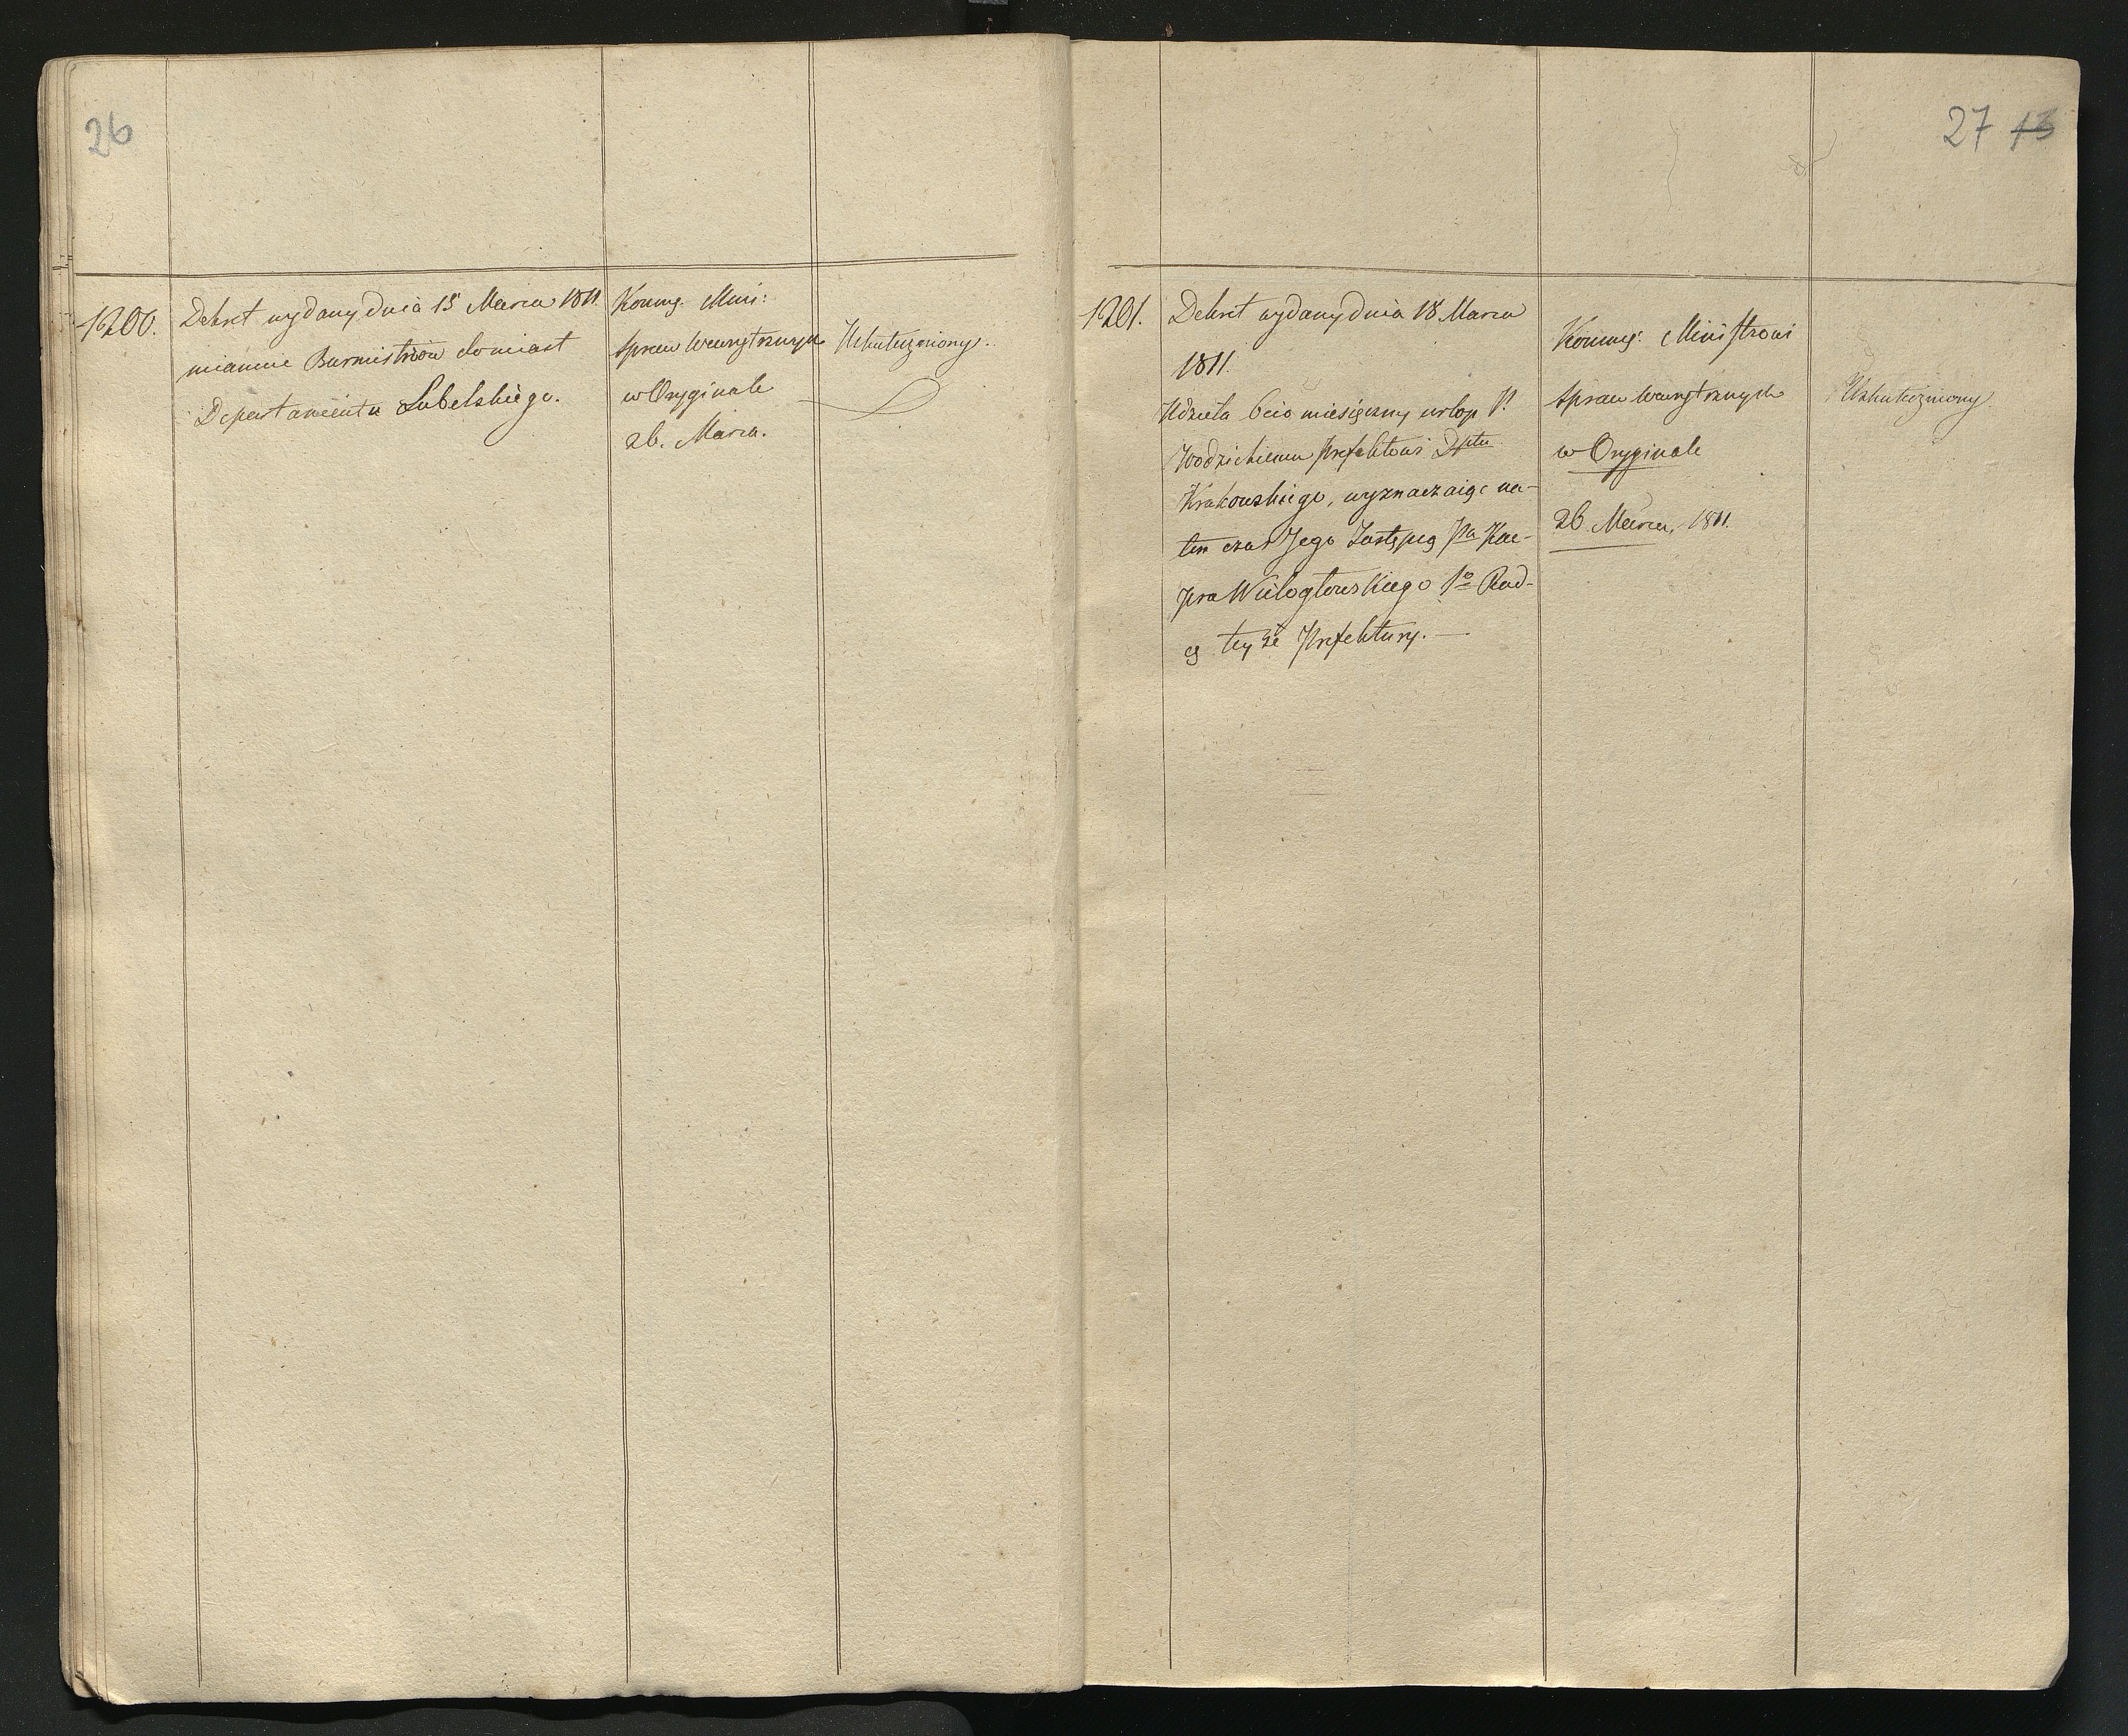 26
1200.
Dekret wydany dnia 15 Marca 1811.
mianuie Burmistrzów do miast
Departamentu Lubelskiego.
Kommg. Mini:
spraw Wewnętrznych
w Oryginale
26. Marca.
Uskuteczniony.
27 13
1201.
Dekret wydany dnia 18 Marca
1811.
Udziela 6cio miesięczny urlop P.
Wodzickiemu Prefektowi Dptu
Krakowskiego, wyznaczaiąc na-
ten czas Jego Zastępcą Pa Kac-
pra Wielogłowskiego 1o Rad-
cę teyże Prefektury. —
Kommg: Ministrowi
Spraw Wewnętrznych
w Oryginale
26 Marca, 1811.
Uskuteczniony